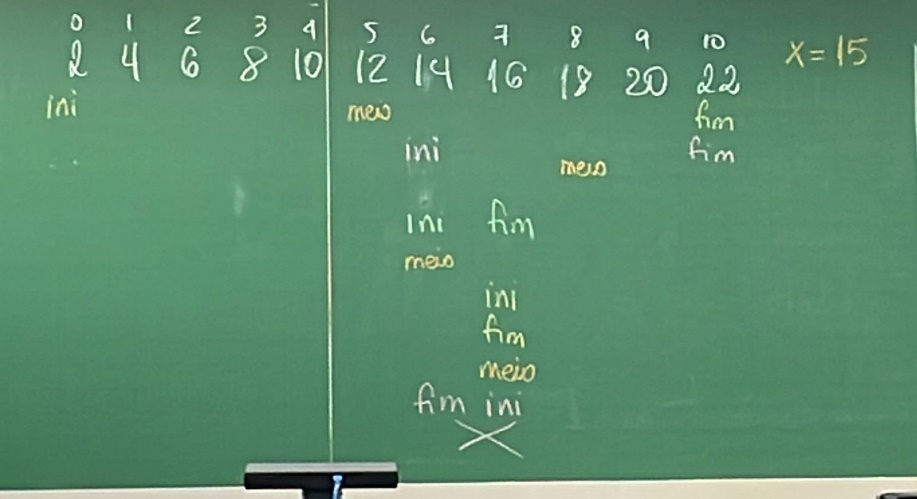 0 1 2 3 4 5 6 7 8 9 10
2 4 6 8 10 12 14 16 18 20 22 x=15
ini meio fim
ini meio fim
ini fim
meio
ini
fim
meio
fim ini